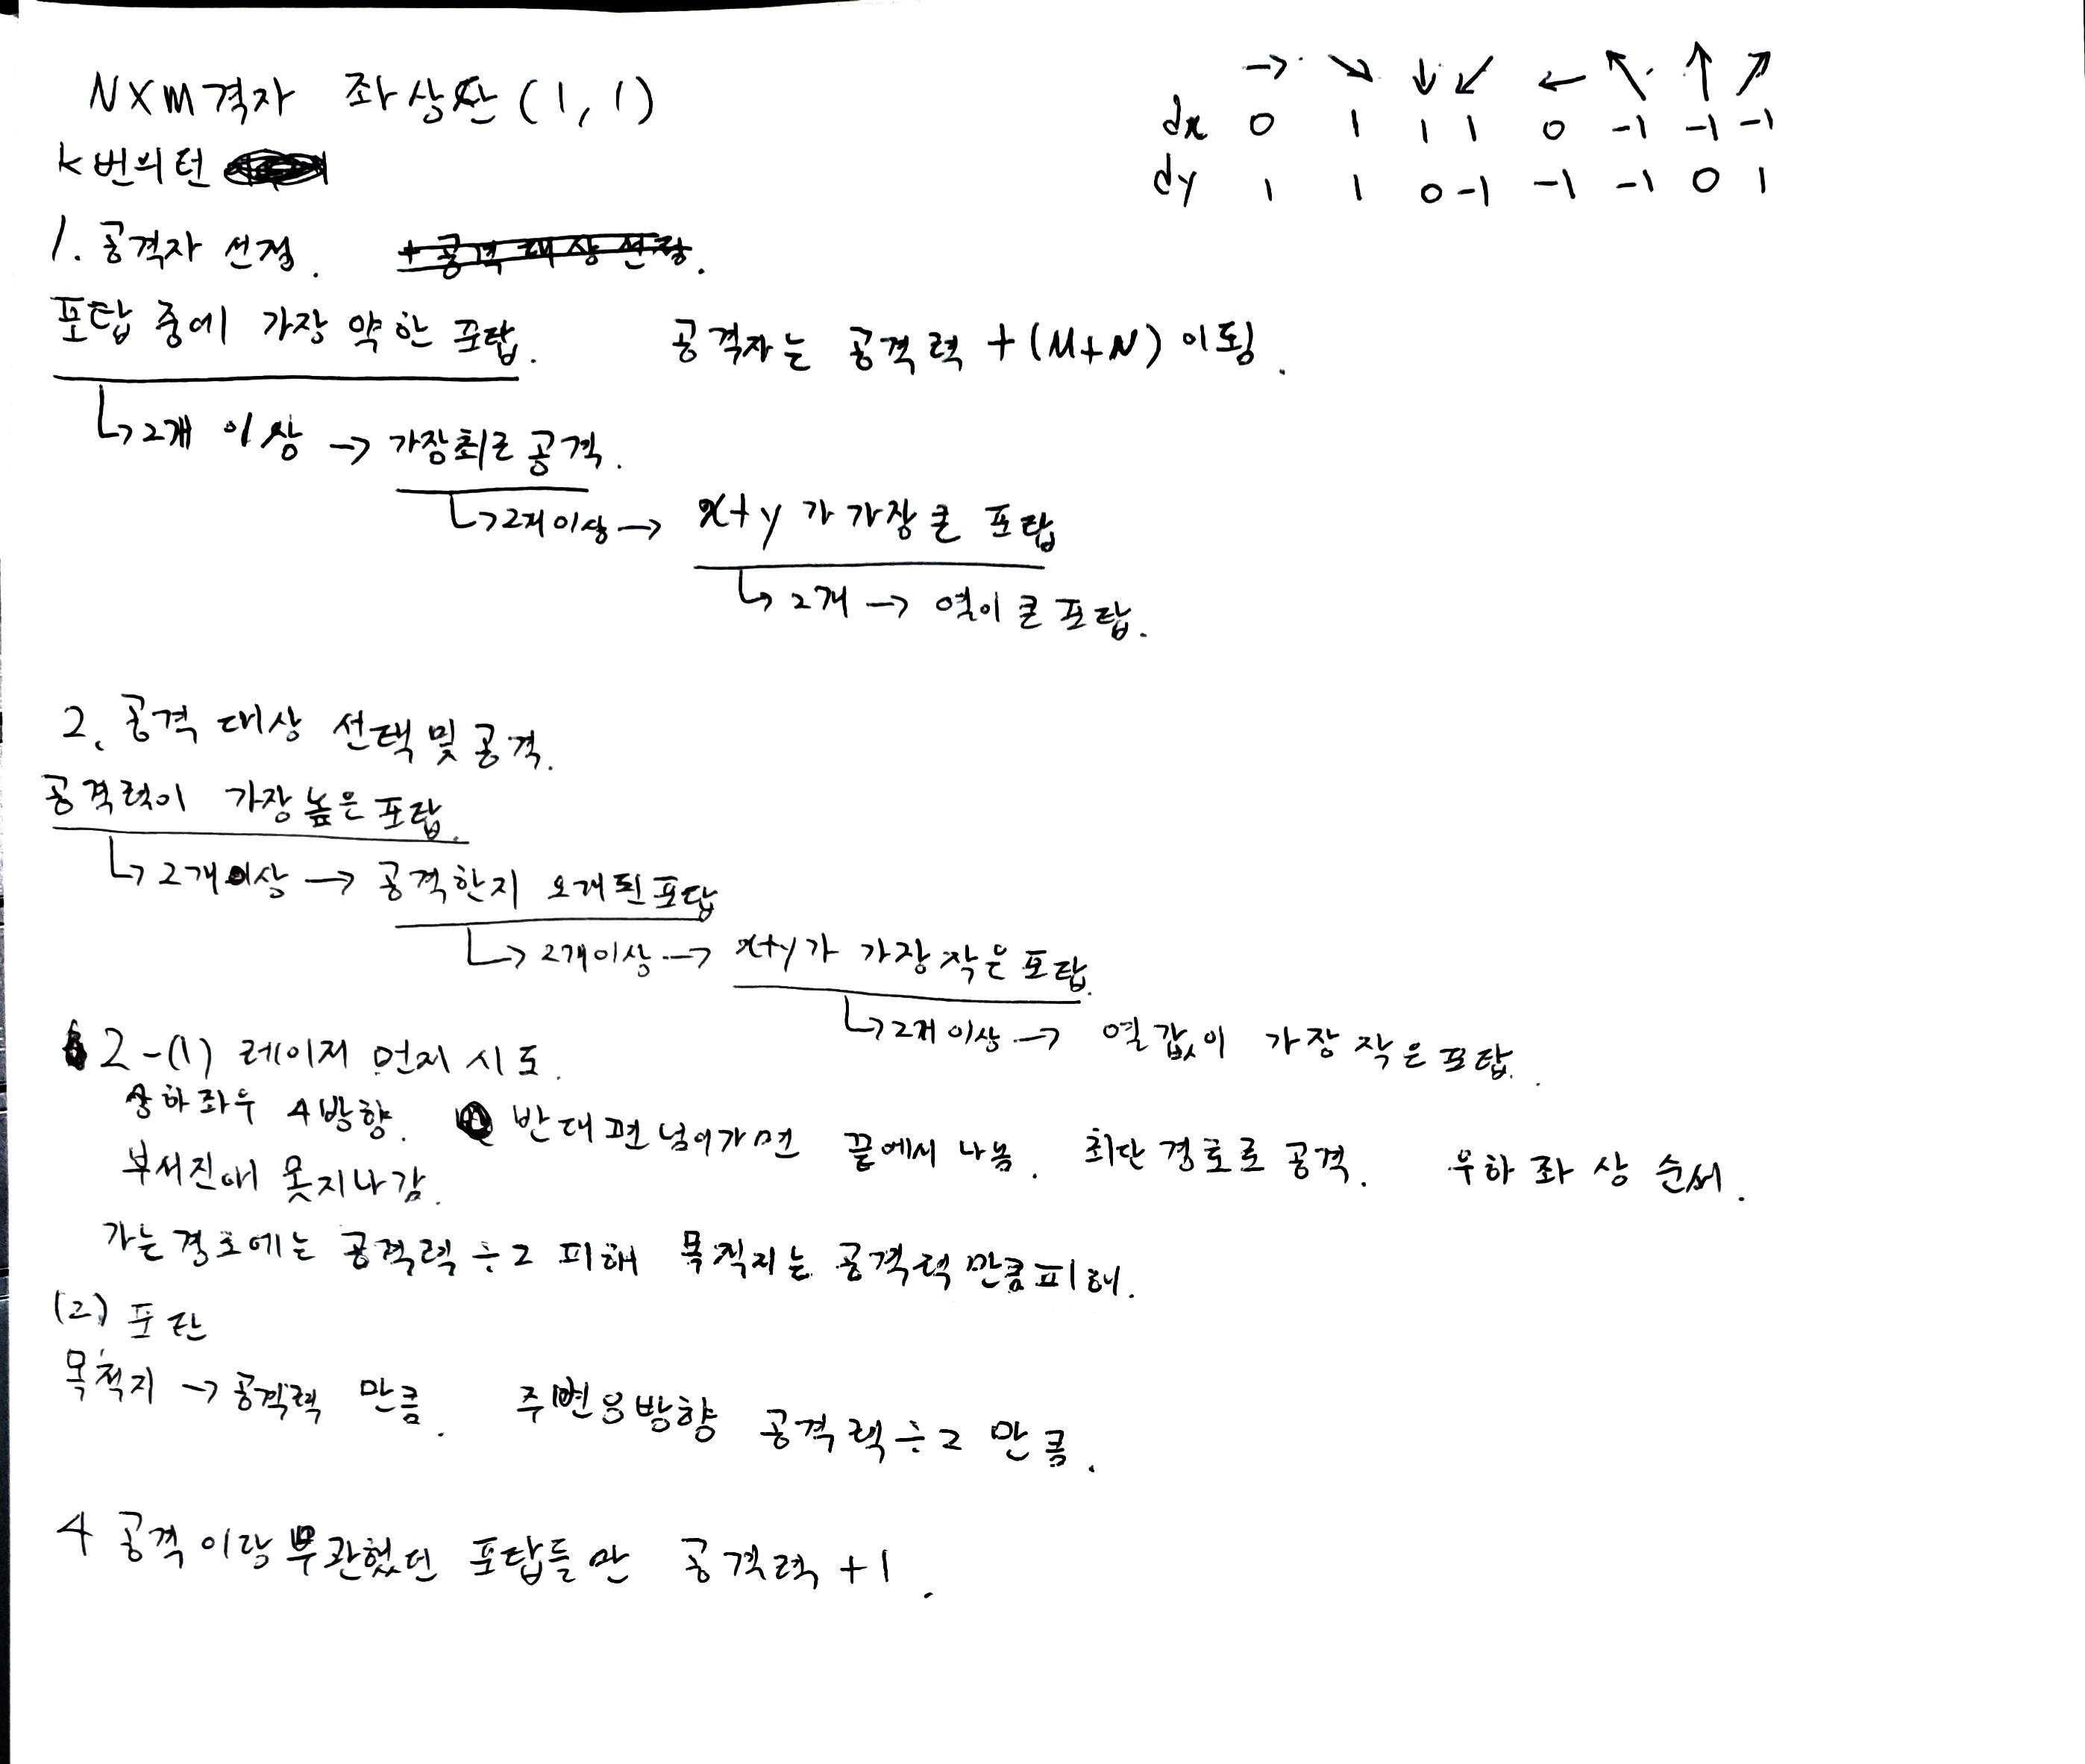 NXM격자 좌상단(1,1)
→ ↘ ↓ ↙ ← ↖ ↑ ↗
dx 0 1 1 1 0 -1 -1 -1
dy 1 1 0 -1 -1 -1 0 1
k번의턴
1. 공격자 선정.
포탑 중에 가장 약한 포탑. 공격자는 공격력 +(M+N)이됨.
↳2개 이상 → 가장최근 공격.
↳2개이상 → x+y 가 가장 큰 포탑
↳2개 → 열이 큰 포탑.
2. 공격 대상 선택 및 공격.
공격력이 가장 높은 포탑.
↳2개이상 → 공격한지 오래된포탑
↳2개이상 → x+y가 가장 작은 포탑.
↳2개 이상 → 열 값이 가장 작은 포탑.
2-(1) 레이저 먼저 시도.
상하좌우 4방향. 반대편 넘어가면 끝에서 나옴. 최단 경로로 공격. 우하 좌 상 순서.
부서진애 못지나감.
가는경로에는 공격력÷2 피해 목적지는 공격력 만큼피해.
(2) 포탄
목적지 → 공격력 만큼. 주변8방향 공격력÷2 만큼.
4 공격이랑 무관했던 포탑들만 공격력 +1.